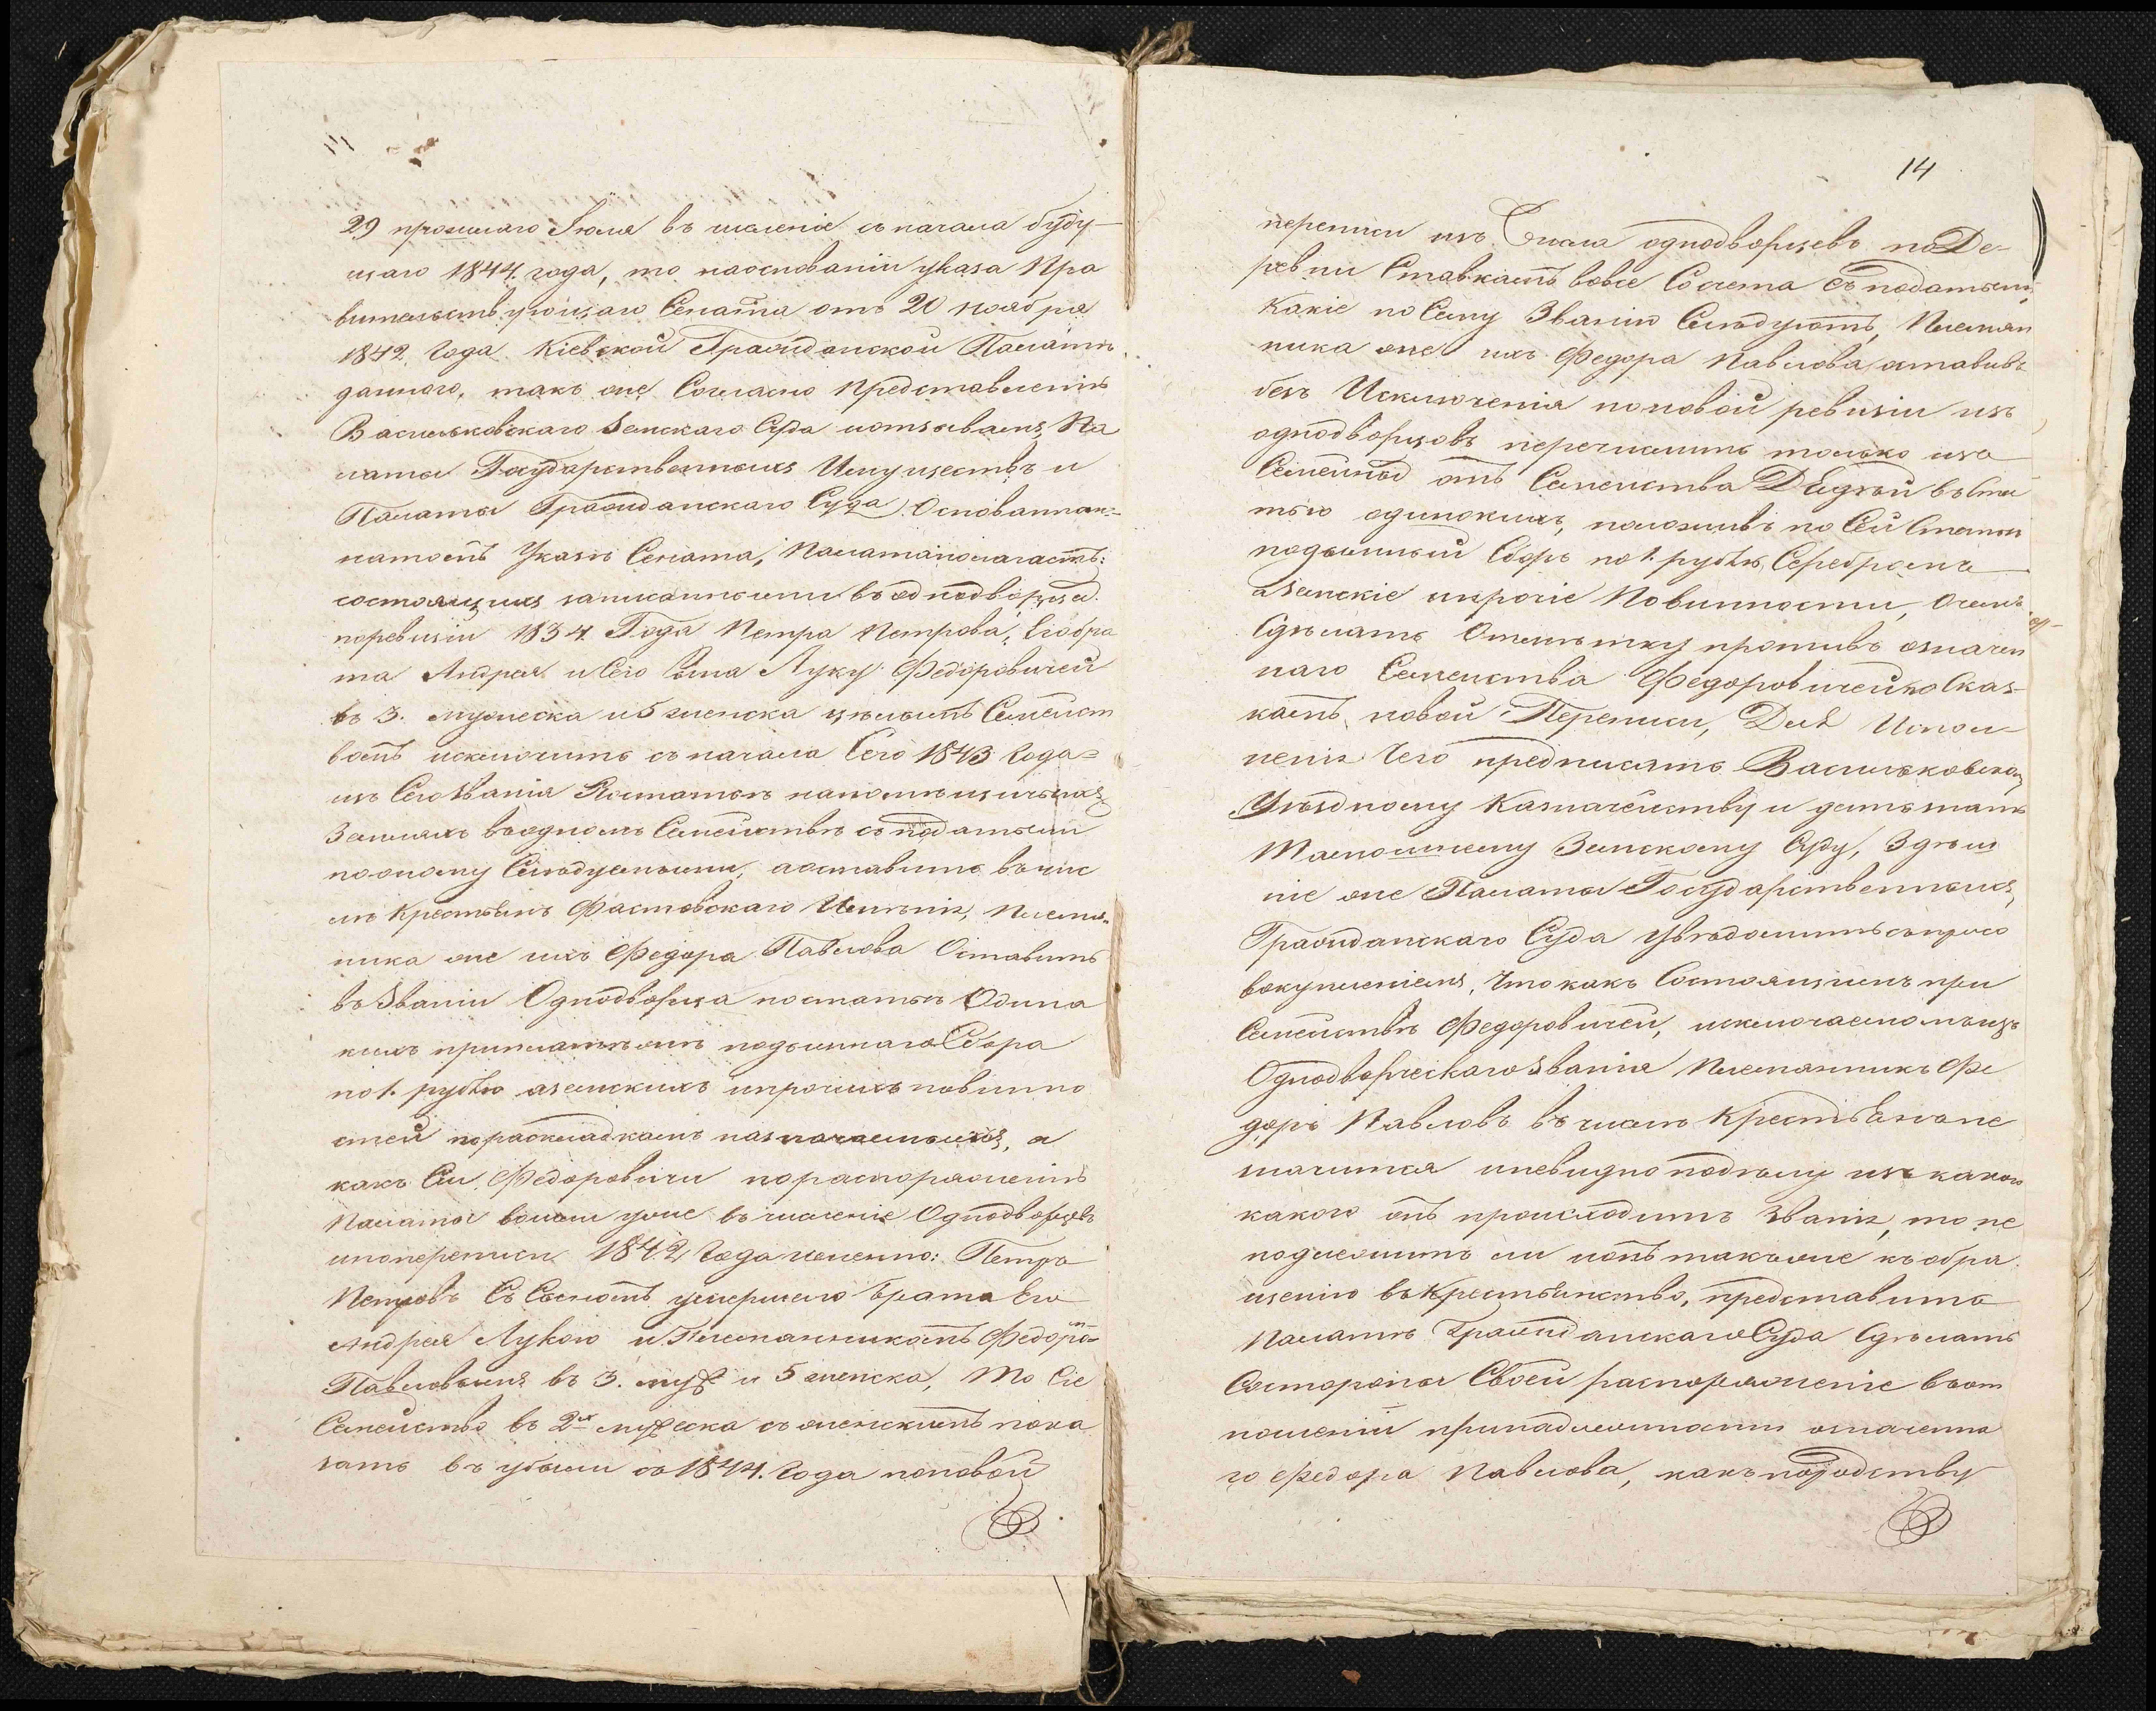 29 прошлаго Іюля въ численіе съ начала буду-
щаго 1844. года, то наоснованіи указа Пра
вительствующаго Сената отъ 20 ноября
1842. Года Кіевской Гражданской Палатѣ
даннаго, такъ же Согласно Представленію
Васильковскаго Земскаго Суда иотзывамъ, Па
латы Государственныхъ Имуществъ и
Палаты Гражданскаго Суда. Основаннымъ
натомъ Указѣ Сената, Палата полагаетъ:
состоящихъ записанными въ однодворцы
поревизіи 1834 Года Петра Петрова, Егобра
та Андрея и Его сына Луку Федоровичей
въ 3. мужеска и 5 женска цѣлымъ Семейст
вомъ исключить съ начала Сего 1843 Года=
изъ Сего званія
Земляхъ водномъ Семействѣ съ податьми
пооному Слѣдуемыми, аоставить въ чис
лѣ Крестьянъ Фастовскаго Имѣнія, Племян
ника же ихъ Федора Павлова Оставить
въ Званіи Однодворца постатьѣ Одино
кихъ приплатѣ имъ подымнаго Сбора
по 1. рублю аземскихъ ипрочихъ повинно
стей пораскладкамъ назначаемыхъ, а
какъ Сіи Федоровичи пораспоряженію
Палаты вошли уже въ численіе Однодворцевъ
ипопереписи 1842 Года именно: Петръ
Петровъ Съ Сыномъ умершаго Брата Его
Андрея Лукою и Племянникомъ Федоромъ
Павловымъ въ 3. муж и 5 женска, То Сіе
Семейство въ 2хъ мужеска съ женскимъ пока
зать въ убыли съ 1844. Года поновой
14
переписи изъ Числа однодворцевъ по Де-
ревни Ставкамъ вовсе Сосчета съ податьми,
Какіе по Сему Званію Слѣдуютъ, Племян
ника же ихъ Федора Павлова оставивъ
безъ Исключенія поновой ревизіи изъ
однодворцовъ перечислить только изъ
Семейной отъ Семейства Дядей въ Ста
тью одинокихъ, положивъ по Сей Статьи
подымный Сборъ по 1. рублю, Серебромъ
аземскіе ипрочіе Повинности, Очемъ
Сдѣлать Отмѣтку противъ означен
наго Семейства Федоровичей по Сказ-
камъ новой Переписи, Для Испол-
ненія Чего предписать Васильковскому
Уѣздному Казначейству и дать знать
Тамошнему Земскому Суду, Здѣш
ніе же Палаты Государственныхъ,
Гражданскаго Суда Увѣдомить съ присо
вокупленіемъ, Что какъ Состоящій при
Семействѣ Федоровичей, исключаемомъ изъ
Однодворческаго званія Племянникъ Фе
доръ Павловъ въ числѣ Крестьянъ не
значится иневидно подѣлу изъ какого
какого онъ происходитъ Званія, то не
подлежитъ ли ионъ такъ же къ обра
щенію въ Крестьянство, представить
Палатѣ Гражданскаго Суда Сдѣлать
Состороны Своей распоряженіе въ от
ношеніи принадлежности означенна
го Федора Павлова, какъ породству